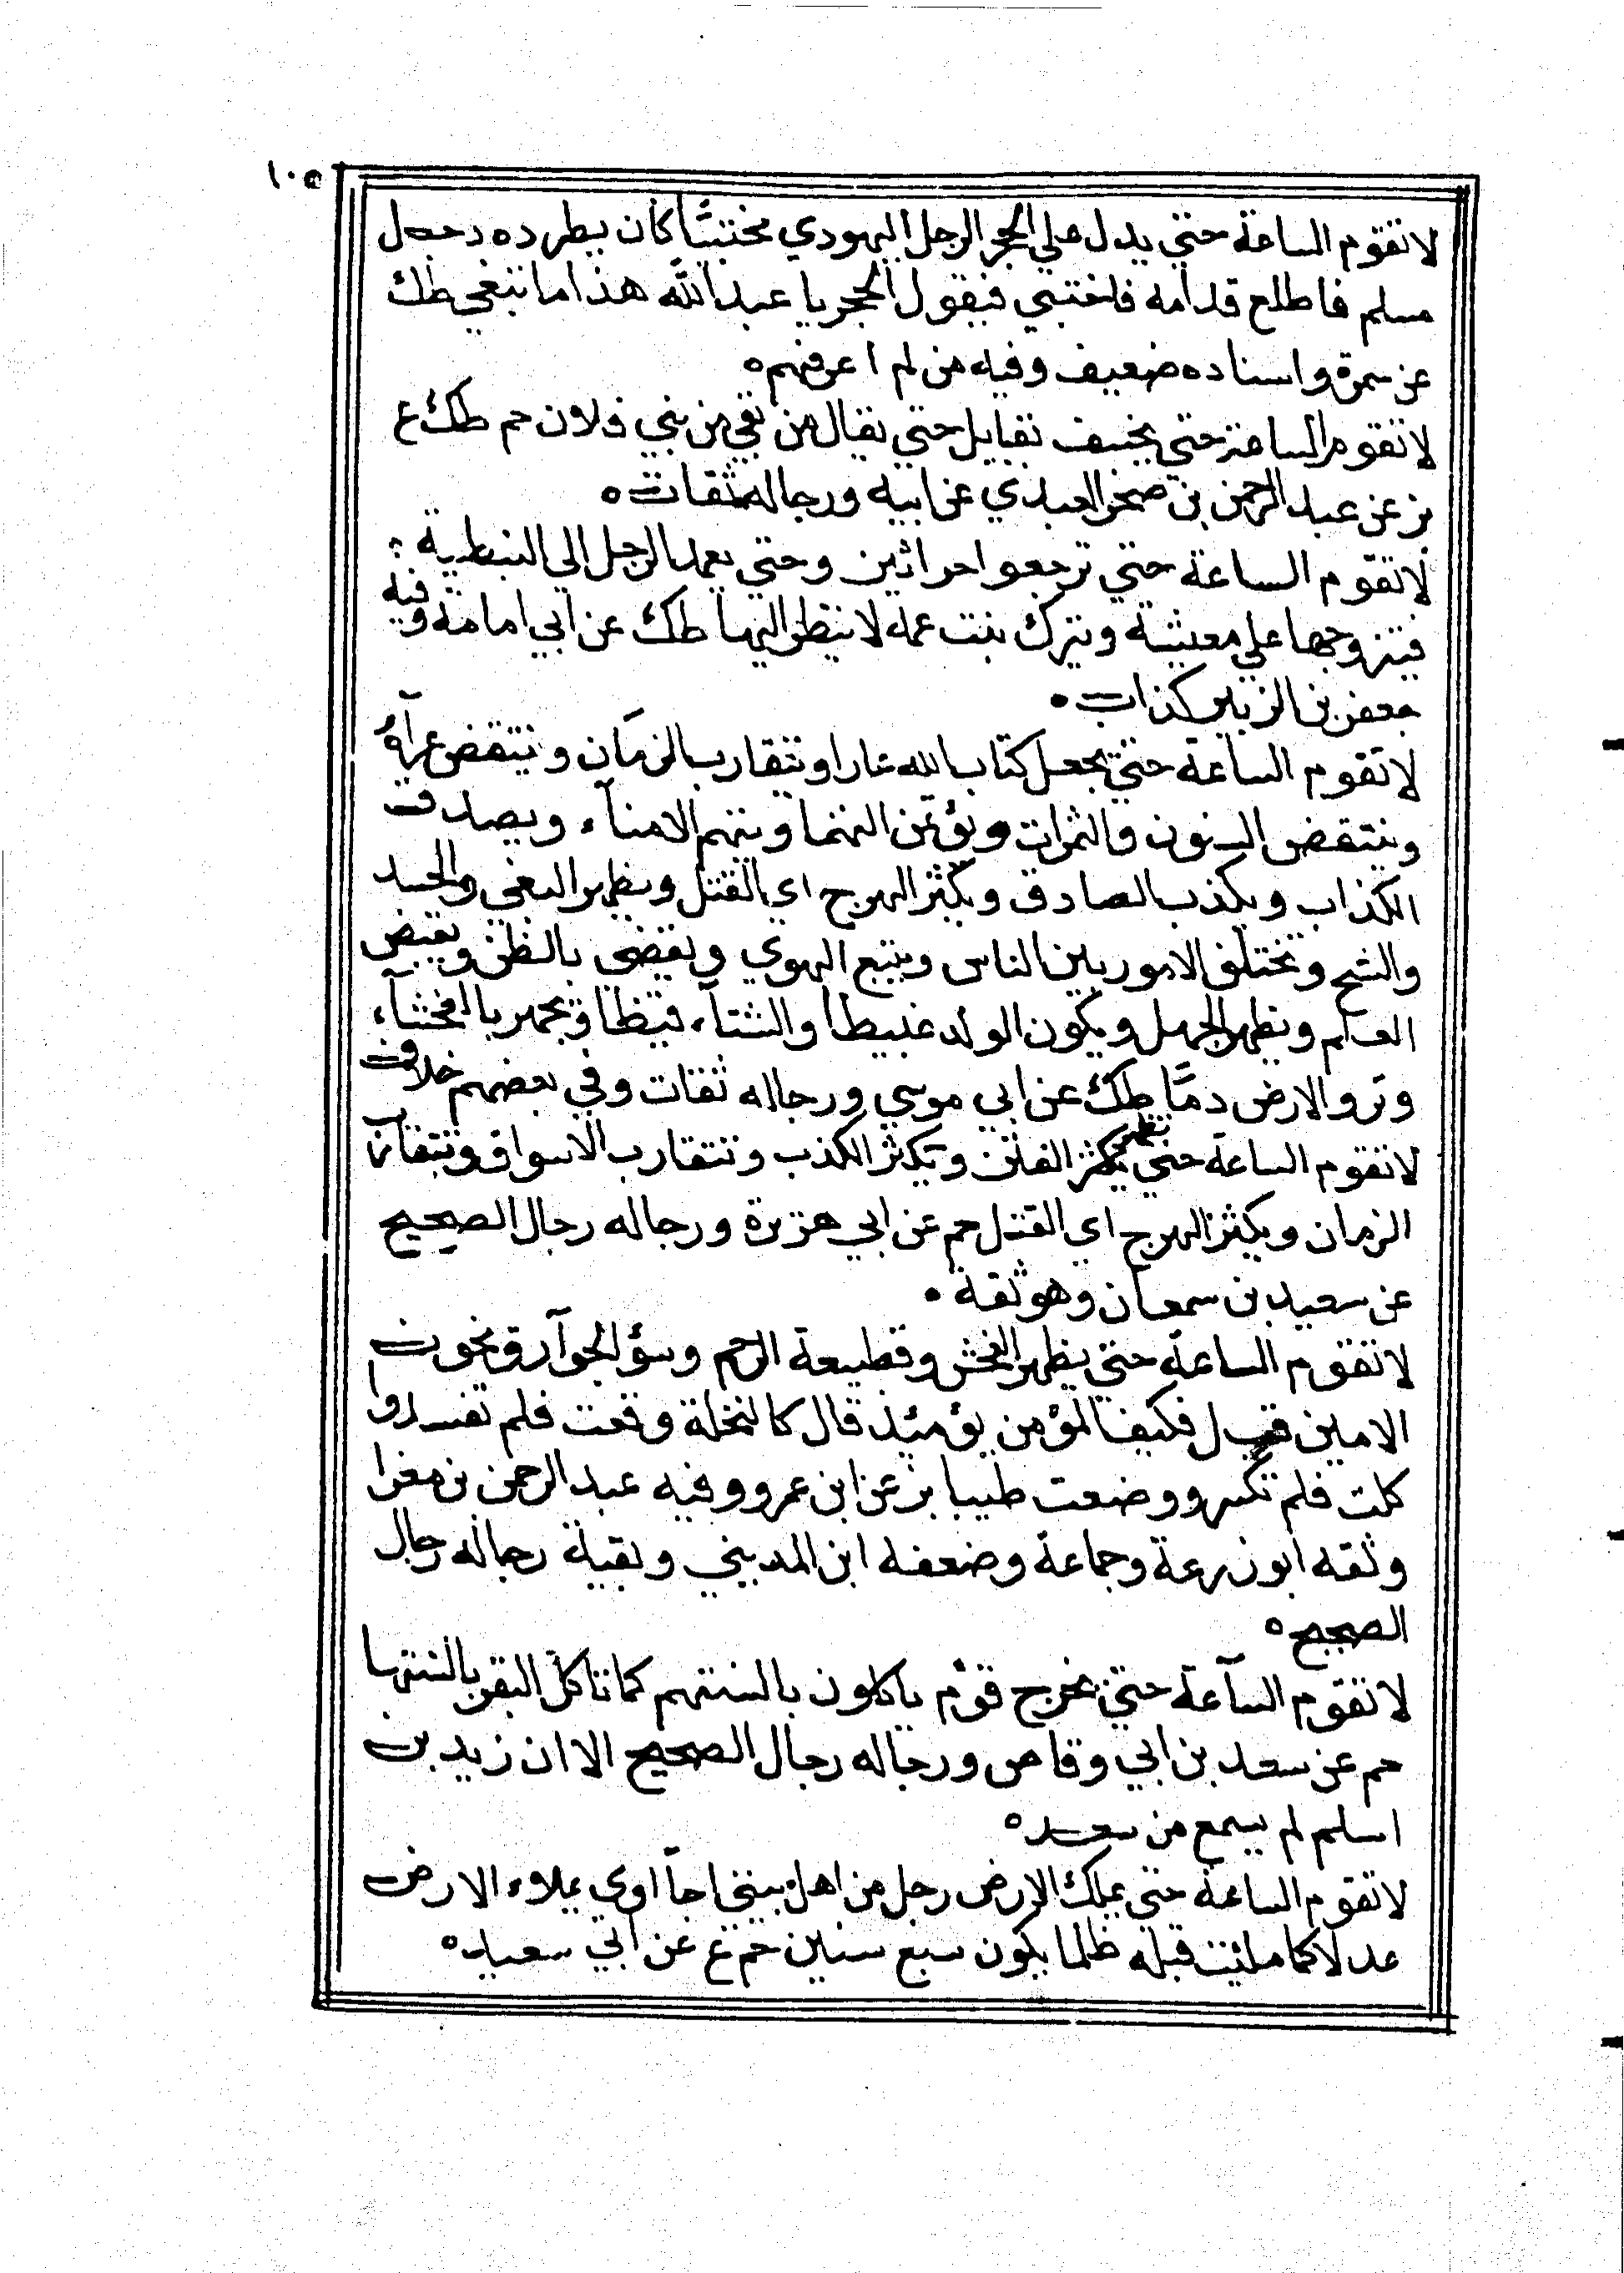 ١٠٥
لا تقوم الساعة حتي يدل علي الحجر الرجل اليهودي مختبئًا كان يطرده رجل
مسلم فاطلع قدامه فاختبي فيقول الحجر يا عبد الله هذا ما تبغي طك
عن سمرة واسناده ضعيف وفيه من لم اعرفهم
لا تقوم الساعة حتي يخسف بقبايل حتي يقال من بقي من بني فلان حم طك ع
بز عن عبد الرحمن بن صخر العبدي عن ابيه ورجاله ثقات
لا تقوم الساعة حتي ترجعوا حراثين وحتي يعمد الرجل الي النبطية
فيتزوجها علي معيشة ويترك بنت عمه لا ينظر اليها طك عن ابي امامة وفيه
جعفر بن الزبير كذاب
لا تقوم الساعة حتي يجعل كتاب الله عارا ويتقارب الزمان وينتقض عراه
وينتقض السنون والثمرات ويؤتمن التهما ويتهم الامنآء ويصدق
الكذاب ويكذب الصادق ويكثر الهرج اي القتل ويظهر البغي والحسد
والشح وتختلف الامور بين الناس ويتبع الهوي ويقضي بالظن ويقبض
العلم ويظهر الجهل ويكون الولد غيظا والشتآء قيظا ويجهر بالفحشآء
وترو الارض دمًا طك عن ابي موسي ورجاله ثقات وفي بعضهم خلاف
لا تقوم الساعة حتي تظهر الفتن ويكثر الكذب وتتقارب الاسواق ويتقارب
الزمان ويكثر الهرج اي القتل حم عن ابي هريرة ورجاله رجال الصحيح
عن سعيد بن سمعان وهو ثقة
لا تقوم الساعة حتي يظهر الفحش وقطيعة الرحم وسؤ الجوار ويخون
الامين قيل فكيف المؤمن يؤمئذ قال كالنخلة وقعت فلم تفسد وا
كلت فلم تكسر ووضعت طيبا بز عن ابن عمرو وفيه عبد الرحمن بن مغرا
وثقه ابو زرعة وجماعة وضعفه ابن المديني وبقية رجاله رجال
الصحيح
لا تقوم الساعة حتي يخرج قوم ياكلون بالسنتهم كما تاكل البقر بالسنتها
حم عن سعد بن ابي وقاص ورجاله رجال الصحيح الا ان زيد بن
اسلم لم يسمع من سعد
لا تقوم الساعة حتي يملك الارض رجل من اهل بيتي اجآ يملاء الارض
عدلا كما ملئت قبله ظلما يكون سبع سنين حم ع عن ابي سعيد